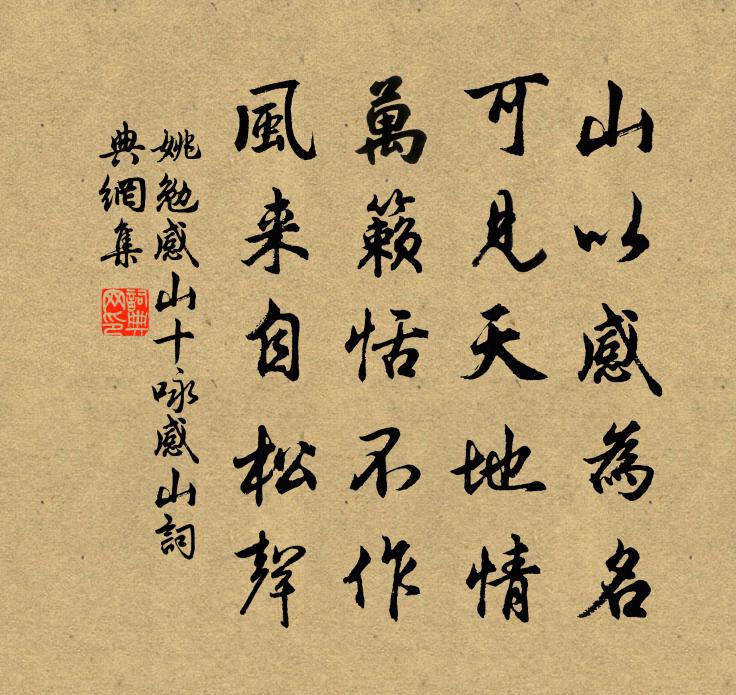 山以感為名
可見天地情
萬籟恬不作
風来自松聲
姚勉感山十咏感山詞
典網集
詞典
网印